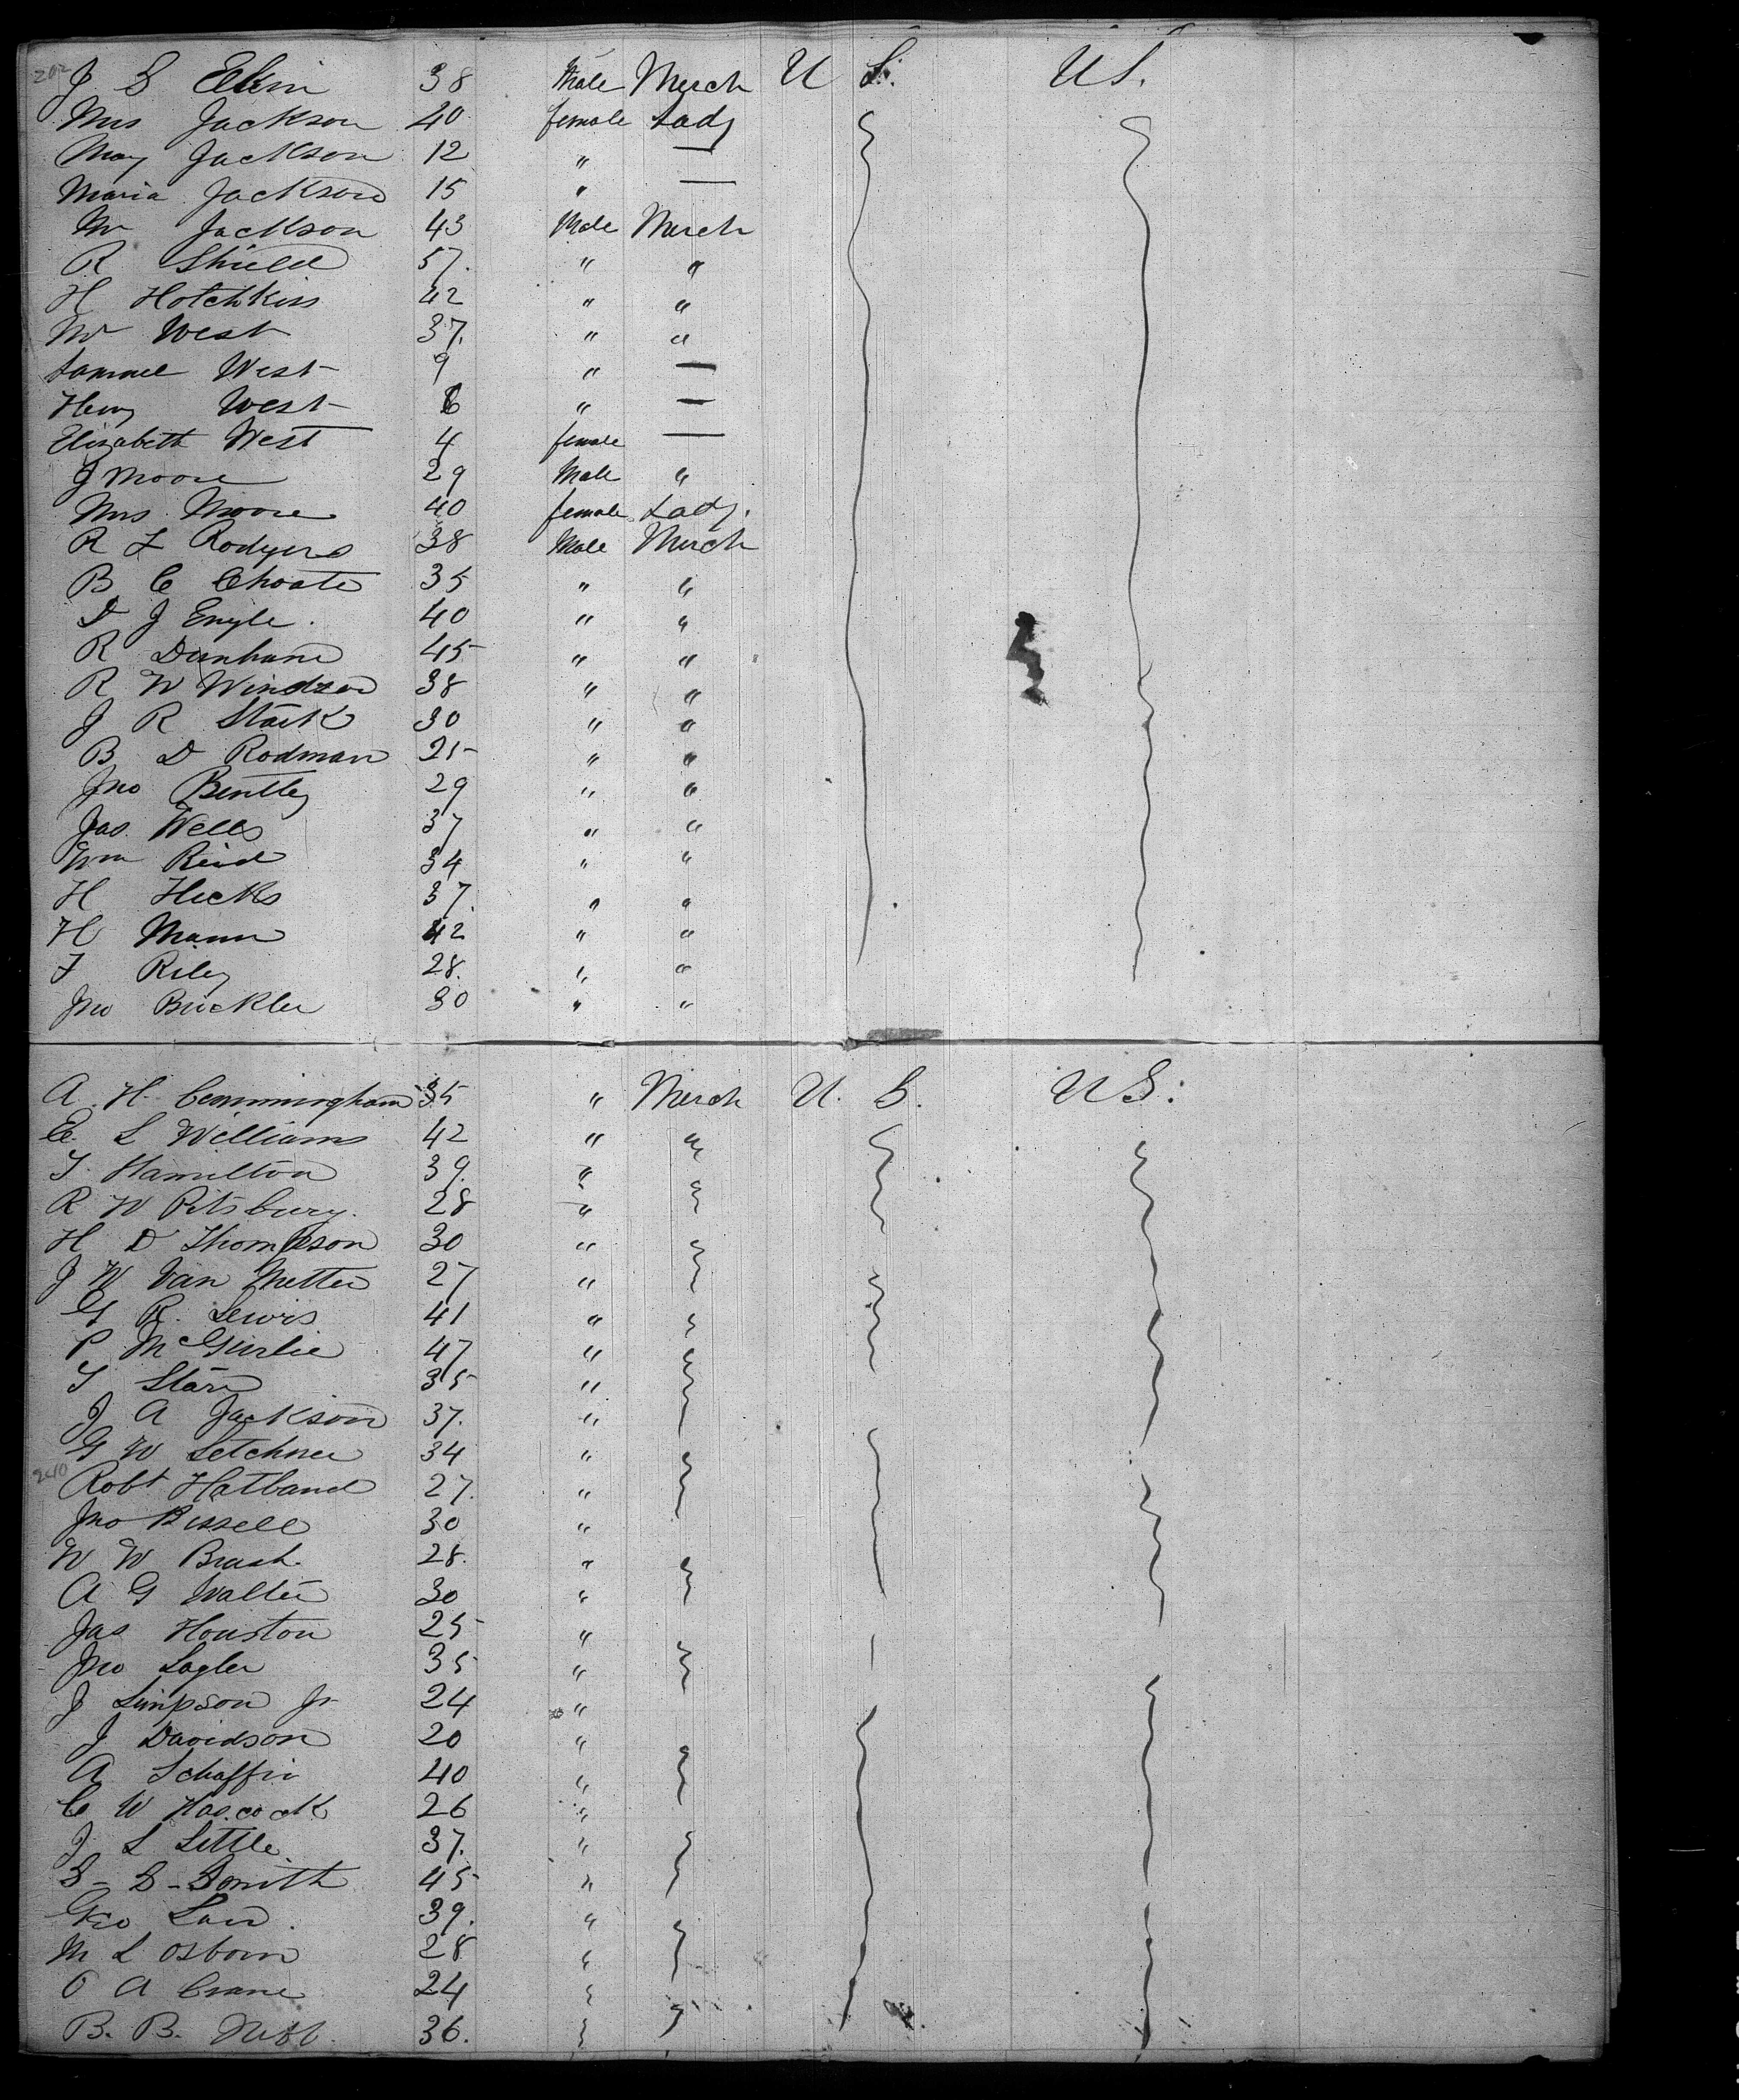 202 J S Elkin 38 Male Merch U S. U S.
Mrs Jackson 40 female Lady
May Jackson 12 " —
Maria Jackson 15 " —
Mr Jackson 43 Male Merch
R Shield 57. " "
H Hotchkiss 42 " "
Mr West 37. " "
Samuel West 9 " —
Henry West 6 " —
Elizabeth West 4 female —
J Moore 29 Male "
Mrs Moore 40 female Lady.
R L Rodgers 38 Male Merch
B C Choate 35 " "
D J Engle. 40 " "
R Dunham 45 " "
R W Windzor 38 " "
J R Stark 30 " "
B D Rodman 25 " "
Jno Bentley 29 " "
Jas. Wells 37 " "
Wm Reid 34 " "
H Hicks 37. " "
H Mann 42 " "
F Riley 28. " "
Jno Buckler 30 " "
A. H. Cunningham 35 " Merch U. S. U S.
E. L Williams 42 " "
T. Hamilton 39. "
R W Pitsbury. 28 "
H D Thompson 30 "
J W Van Metter 27 "
G R. Lewis 41 "
P McGuslie 47 "
T Starr 35 "
J A Jackson 37. "
G W Letchner 34 "
240 Robt Hatband 27. "
Jno Bissell 30 "
W W Brash. 28. "
A G Walter 30 "
Jas Houston 25 "
Jno Lagler 35 "
J Simpson Jr 24 "
J Davidson 20 "
A Schaffer 40 "
C W Hascock 26 "
J L Little. 37. "
S - S - Smith 45 "
Geo Law. 39. "
M L Osborn 28 "
O A Crane 24
B. B. 36.